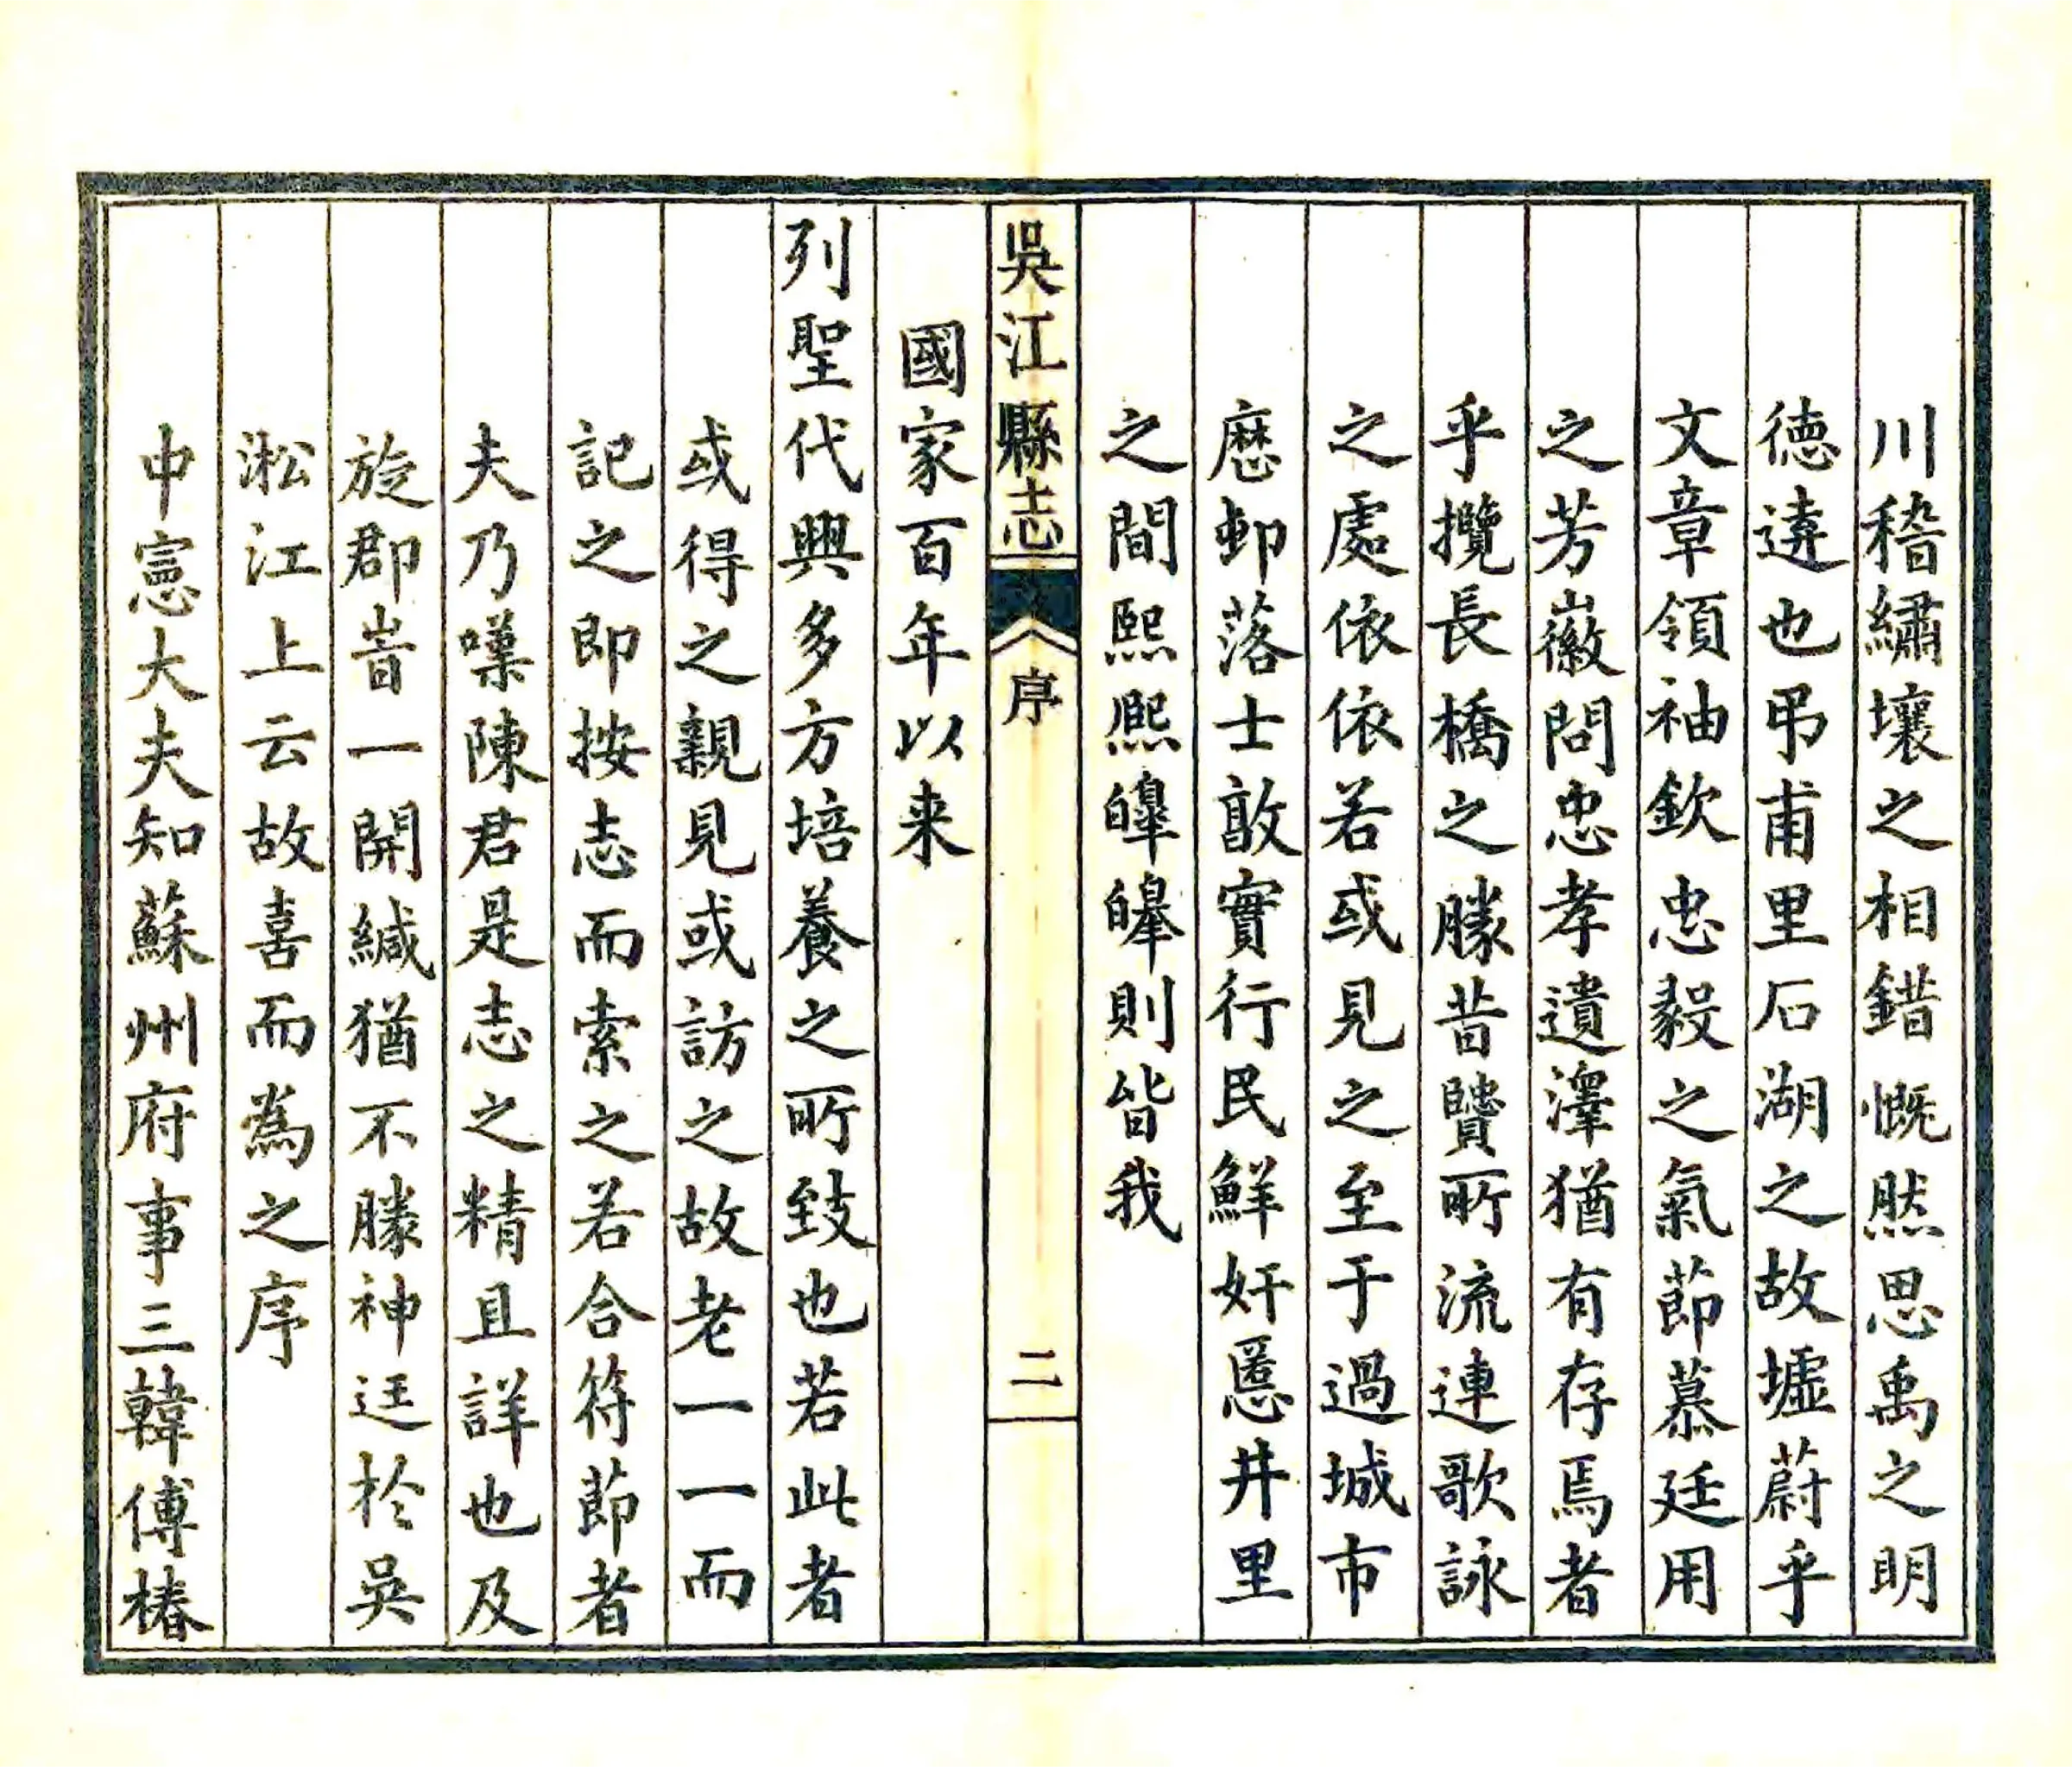 川稽繡壤之相錯慨然思禹之明
德遠也弔甫里石湖之故墟蔚乎
文章領袖欽忠毅之氣節慕廷用
之芳徽問忠孝遺澤猶有存焉者
乎攬長橋之勝昔賢所流連歌詠
之處依依若或見之至于過城市
歷邨落士敦實行民鮮奸慝井里
之間熙熙皞皞則皆我
吳江縣志
序
二
國家百年以来
列聖代興多方培養之所致也若此者
或得之親見或訪之故老一一而
記之即按志而索之若合符節者
夫乃嘆陳君是志之精且詳也及
旋郡岢一開緘猶不勝神迋於吳
淞江上云故喜而為之序
中憲大夫知蘇州府事三韓傅椿